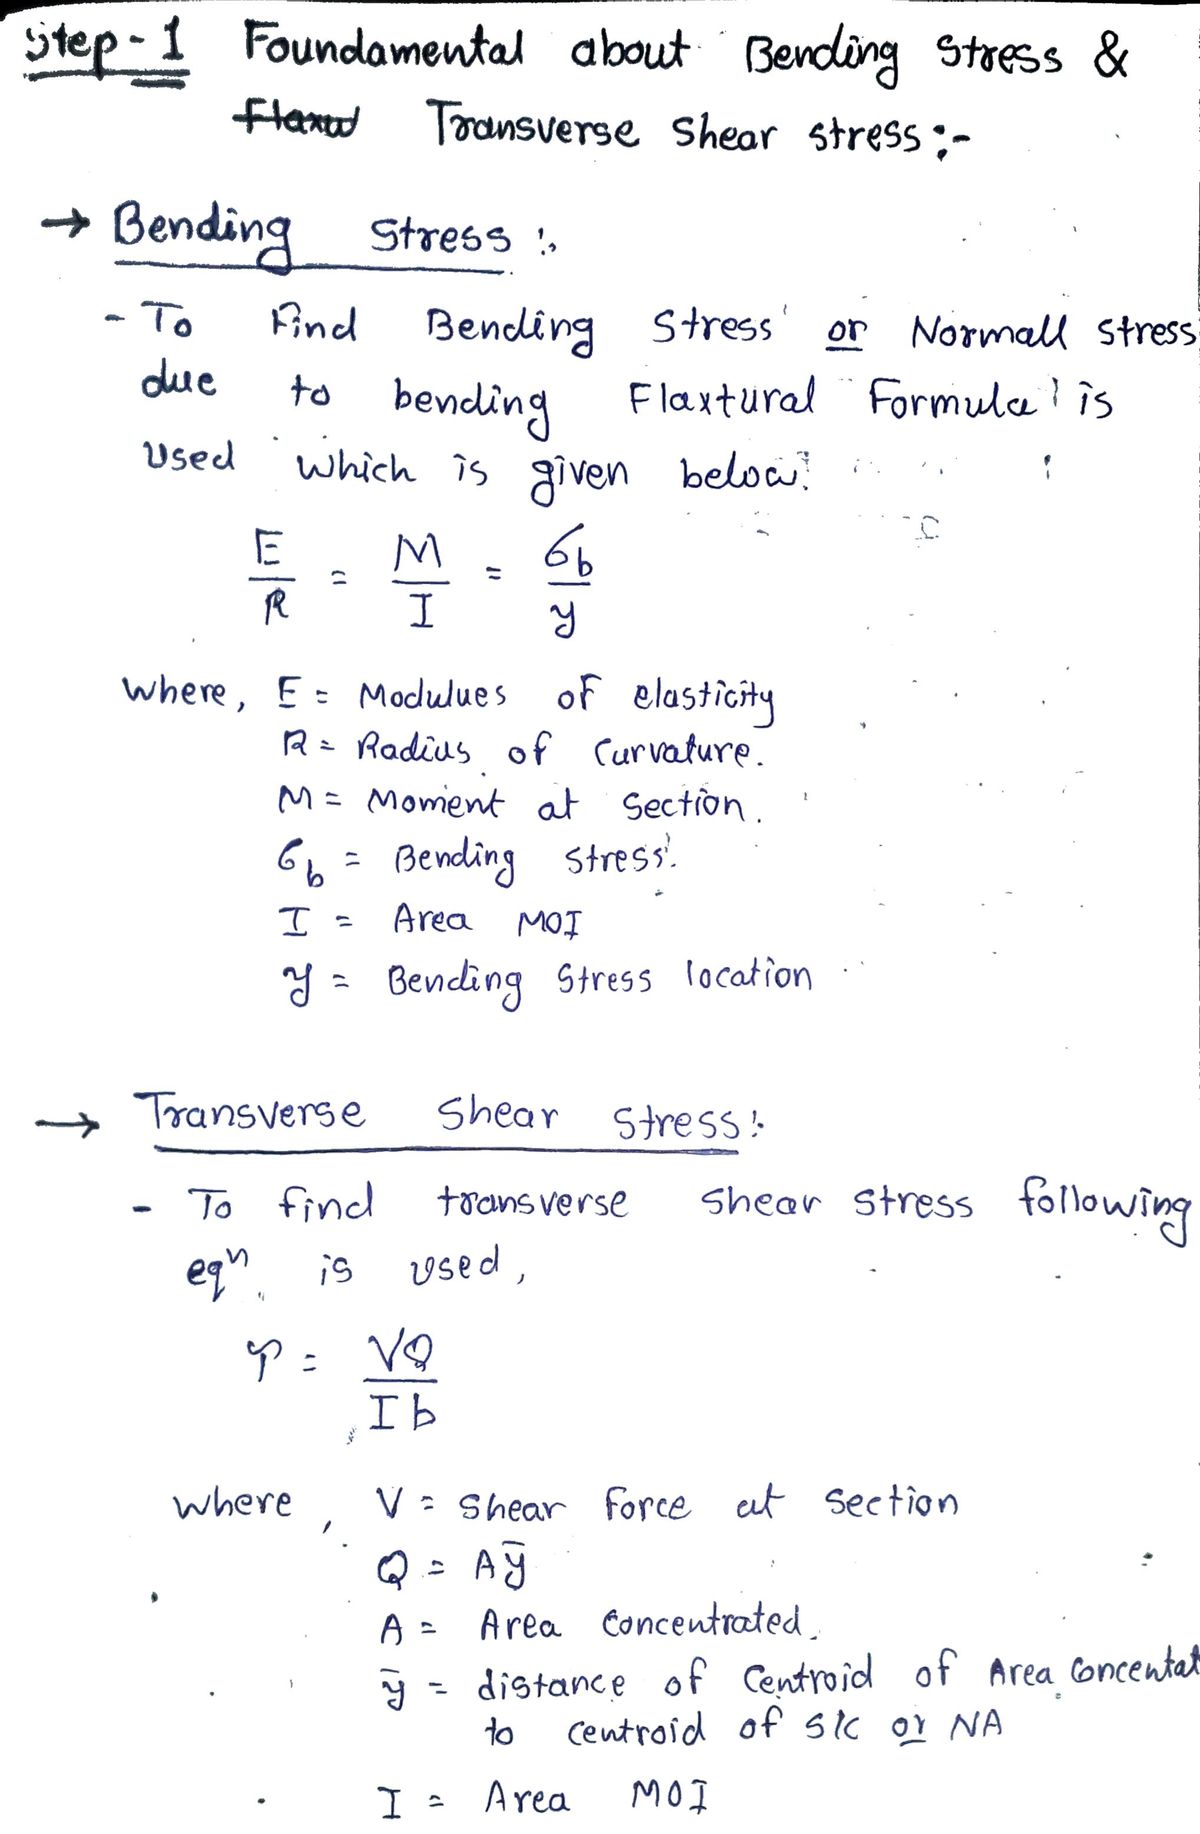 Step-1 Foundamental about Bending Stress &
Transverse shear stress :-
→ Bending Stress :-
- To Find Bending Stress or Normall stress
due to bending Flaxtural Formula is
used which is given below:
E/R = M/I = σb/y
where, E = Modulues of elasticity
R = Radius of Curvature.
M = Moment at Section.
σb = Bending stress.
I = Area MOI
y = Bending Stress location
→ Transverse Shear Stress :-
- To find transverse shear stress following
eqn is used,
τ = VQ/Ib
where, V = Shear Force at Section
Q = Aȳ
A = Area Concentrated.
ȳ = distance of Centroid of Area Concentat
to centroid of S/C or NA
I = Area MOI